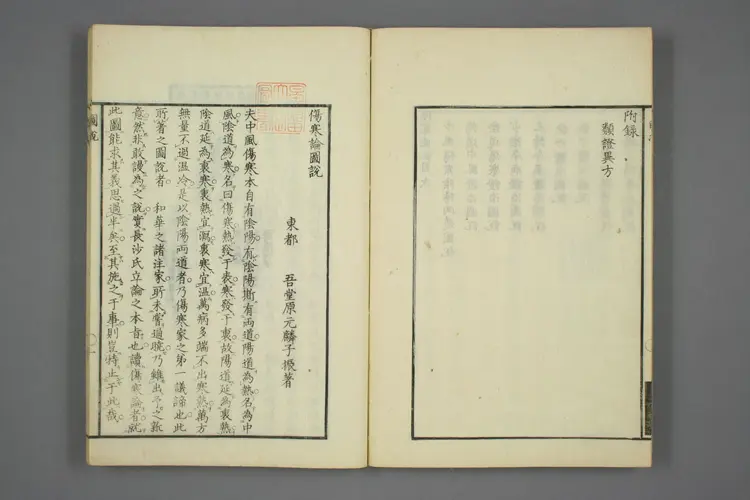 附錄
類證異方
傷寒論圖說
東都 吾堂原元麟子振著
夫中風傷寒本自有陰陽有陰陽斯有兩道陽道為熱名為中
風陰道為寒名曰傷寒熱發于表寒發于裏故陽道延為裏熱
陰道延為裏寒裏熱宜瀉裏寒宜溫萬病多端不出寒熱萬方
無量不過溫冷是以陰陽兩道者乃傷寒家之第一議諦也此
所著之圖說者 和華之諸注家所未嘗過曉乃雖出予之新
意然非敢謾為之說實長沙氏立論之本旨也讀傷寒論者就
此圖能求其義思過半矣至其施之于事則豈特止于此哉
圖說